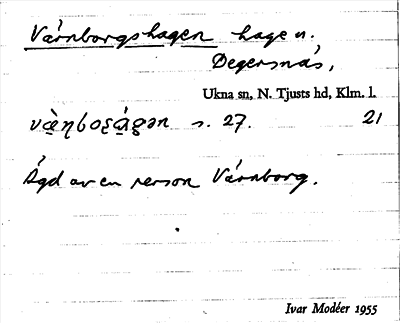 Värnborgshagen hage n.
Degersnäs,
Ukna sn, N. Tjusts hd, Klm. l.
s. 27. 21
Ägd av en person Värnborg.
Ivar Modéer 1955